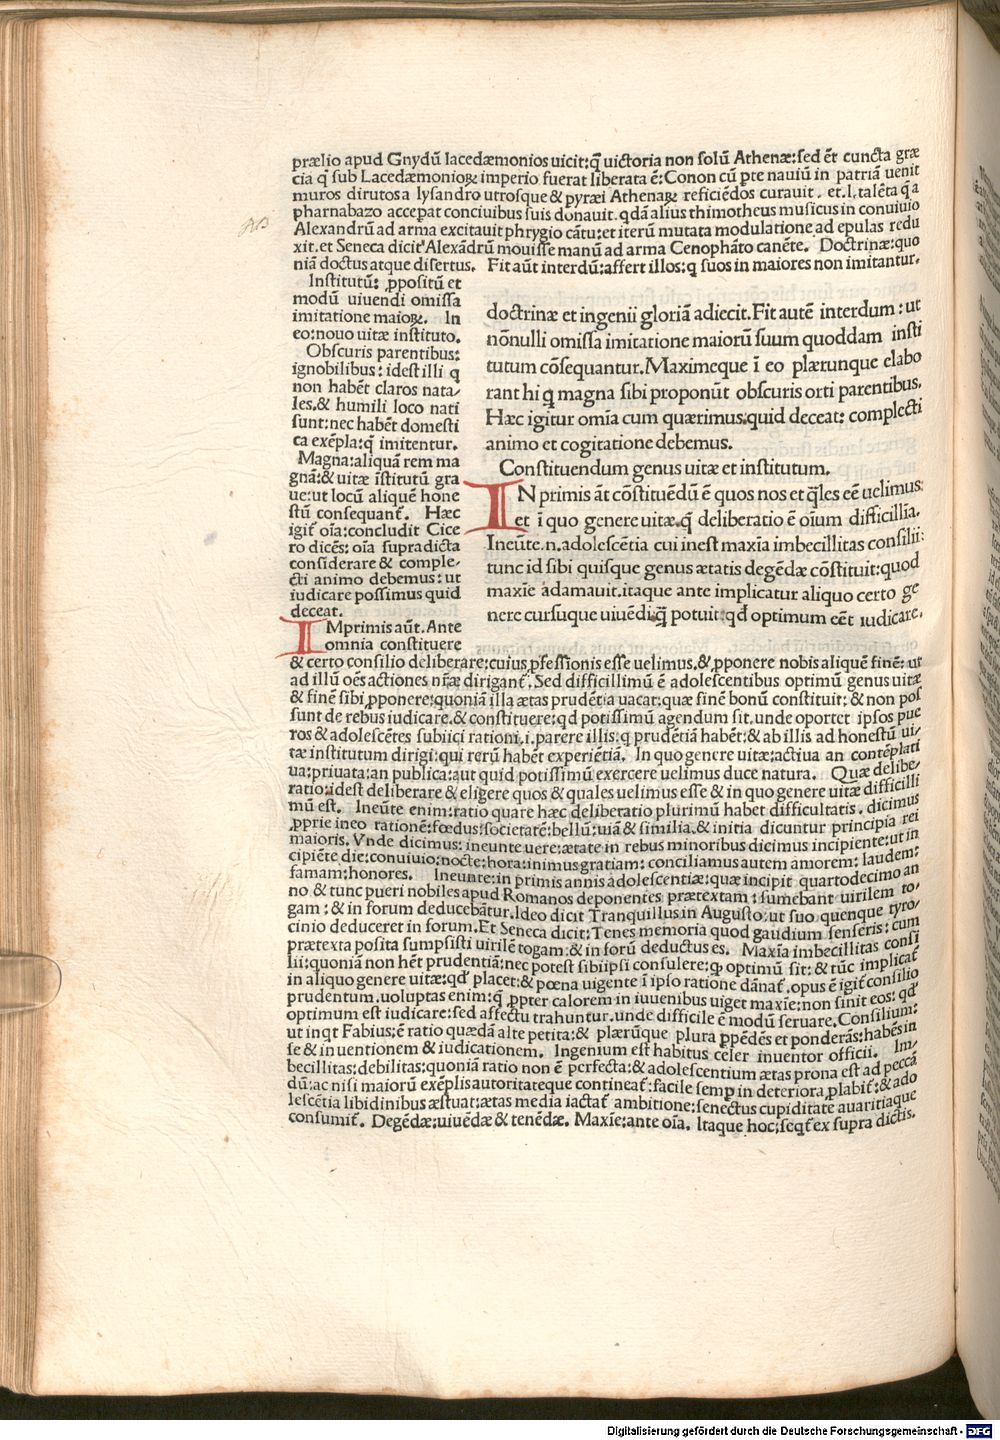 prælio apud Gnydū lacedæmonios uicit: q̄ uictoria non solū Athenæ: sed ēt cuncta græ
cia q̄ sub Lacedæmonioꝝ imperio fuerat liberata ē: Conon cū pte nauiū in patriā uenit
muros dirutos a lysandro utrosque & pyræi Athenaꝝ reficiēdos curauit. et. l. talēta q̄ a
pharnabazo accepat conciuibus suis donauit. qdā alius thimotheus musicus in conuiuio
Alexandrū ad arma excitauit phrygio cātu: et iterū mutata modulatione ad epulas redu
xit. et Seneca dicit Alexādrū mouisse manū ad arma Cenophāto canēte. Doctrinæ: quo
niā doctus atque disertus. Fit aūt interdū: affert illos: q suos in maiores non imitantur.
Institutū: ꝓpositū et
modū uiuendi omissa
imitatione maioꝝ. In
eo: nouo uitæ instituto.
Obscuris parentibus:
ignobilibus: idest illi q
non habēt claros nata/
les. & humili loco nati
sunt: nec habēt domesti
ca exēpla: q̄ imitentur.
Magna: aliquā rem ma
gnā: & uitæ īstitutū gra
ue: ut locū aliquē hone
stū consequant᷑. Hæc
igit᷑ oīa: concludit Cice
ro dicēs: oīa supradicta
considerare & comple/
cti animo debemus: ut
iudicare possimus quid
deceat.
IMprimis aūt. Ante
omnia constituere
doctrinæ et ingenii gloriā adiecit. Fit autē interdum: ut
nōnulli omissa imitatione maiorū suum quoddam insti
tutum cōsequantur. Maximeque ī eo plærunque elabo
rant hi q̄ magna sibi proponūt obscuris orti parentibus.
Hæc igitur omīa cum quærimus: quid deceat: complecti
animo et cogitatione debemus.
Constituendum genus uitæ et institutum.
IN primis āt cōstituēdū ē quos nos et q̄les eē uelimus:
et ī quo genere uitæ. q̄ deliberatio ē oīum difficillīa.
Ineūte. n. adolescētia cui inest maxīa imbecillitas consilii:
tunc id sibi quisque genus ætatis degēdæ cōstituit: quod
maxīe adamauit. itaque ante implicatur aliquo certo ge
nere cursuque uiuēdi: q̄ potuit: qd optimum eēt iudicare.
& certo consilio deliberare: cuius ꝓfessionis esse uelimus. & ꝓponere nobis aliquē finē: ut
ad illū oēs actiones nr̄æ dirigant᷑. Sed difficillimū ē adolescentibus optimū genus uitæ
& finē sibi ꝓponere: quoniā illa ætas prudētia uacat: quæ finē bonū constituit: & non pos
sunt de rebus iudicare. & constituere: qd potissimū agendum sit. unde oportet ipsos pue
ros & adolescētes subiici rationi. i. parere illis: q prudētiā habēt: & ab illis ad honestū ui/
tæ institutum dirigi: qui rerū habēt experiētiā. In quo genere uitæ: actiua an contēplati
ua: priuata: an publica: aut quid potissimū exercere uelimus duce natura. Quæ delibe/
ratio: idest deliberare & eligere quos & quales uelimus esse & in quo genere uitæ difficilli
mū est. Ineūte enim: ratio quare hæc deliberatio plurimū habet difficultatis. dicimus
ꝓprie ineo rationē: fœdus: societatē: bellū: uiā & similia. & initia dicuntur principia rei
maioris. Vnde dicimus: ineunte uere: ætate in rebus minoribus dicimus incipiente: ut in
cipiēte die: conuiuio: nocte: hora: inimus gratiam: conciliamus autem amorem: laudem:
famam: honores. Ineunte: in primis annis adolescentiæ: quæ incipit quartodecimo an
no & tunc pueri nobiles apud Romanos deponentes prætextam: sumebant uirilem to/
gam: & in forum deducebātur. Ideo dicit Tranquillus in Augusto: ut suo quenque tyro/
cinio deduceret in forum. Et Seneca dicit: Tenes memoria quod gaudium senseris: cum
prætexta posita sumpsisti uirilē togam: & in forū deductus es. Maxīa imbecillitas consi
lii: quoniā non hēt prudentiā: nec potest sibiipsi consulere: qꝫ optimū sit: & tūc implicat᷑
in aliquo genere uitæ: qd placet: & pœna uigente ī ipso ratione dānat᷑. opus ē igit᷑ consilio
prudentum. uoluptas enim: q̄ ꝓpter calorem in iuuenibus uiget maxīe: non sinit eos: qd
optimum est iudicare: sed affectu trahuntur. unde difficile ē modū seruare. Consilium:
ut inqt Fabius: ē ratio quædā alte petita: & plærūque plura ꝑpēdēs et ponderās: habēs in
se & inuentionem & iudicationem. Ingenium est habitus celer inuentor officii. Im/
becillitas: debilitas: quoniā ratio non ē perfecta: & adolescentium ætas prona est ad peccā
dū: ac nisi maiorū exēplis autoritateque contineat᷑: facile semp in deteriora ꝓlabit᷑: & ado
lescētia libidinibus æstuat: ætas media iactat᷑ ambitione: senectus cupiditate auaritiaque
consumit᷑. Degēdæ: uiuēdæ & tenēdæ. Maxīe: ante oīa. Itaque hoc: seqt᷑ ex supra dictis.
Digitalisierung gefördert durch die Deutsche Forschungsgemeinschaft - DFG